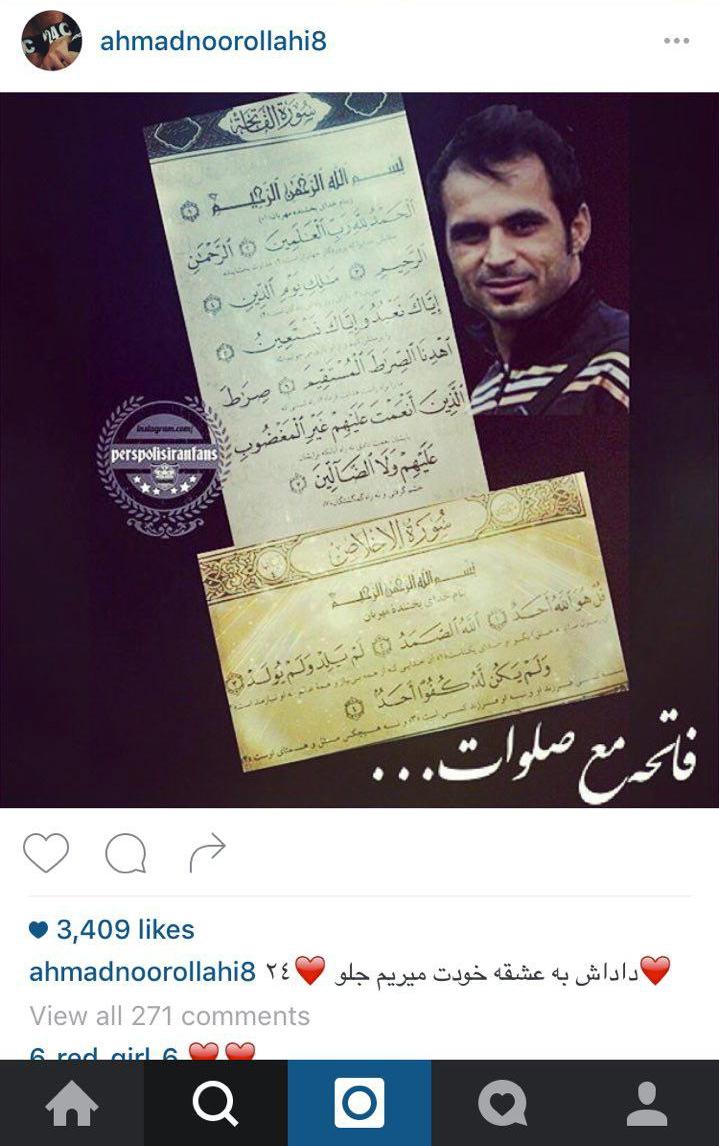 ahmadnoorollahi8
سُورَةُ الْفَاتِحَةِ
بِسْمِ اللَّهِ الرَّحْمَٰنِ الرَّحِيمِ ١
الْحَمْدُ لِلَّهِ رَبِّ الْعَالَمِينَ ٢ الرَّحْمَٰنِ
الرَّحِيمِ ٣ مَالِكِ يَوْمِ الدِّينِ ٤
إِيَّاكَ نَعْبُدُ وَإِيَّاكَ نَسْتَعِينُ ٥
اهْدِنَا الصِّرَاطَ الْمُسْتَقِيمَ ٦ صِرَاطَ
الَّذِينَ أَنْعَمْتَ عَلَيْهِمْ غَيْرِ الْمَغْضُوبِ
عَلَيْهِمْ وَلَا الضَّالِّينَ ٧
instagram.com/
perspolisiranfans
سُورَةُ الْإِخْلَاصِ
بِسْمِ اللَّهِ الرَّحْمَٰنِ الرَّحِيمِ
بنام خدای بخشندهٔ مهربان
قُلْ هُوَ اللَّهُ أَحَدٌ ١ اللَّهُ الصَّمَدُ ٢ لَمْ يَلِدْ وَلَمْ يُولَدْ ٣
وَلَمْ يَكُنْ لَهُ كُفُوًا أَحَدٌ ٤
فاتحه مع صلوات...
3,409 likes
ahmadnoorollahi8 ❤️داداش به عشقه خودت میریم جلو ❤️٢٤
View all 271 comments
6_red_girl_6 ❤️❤️